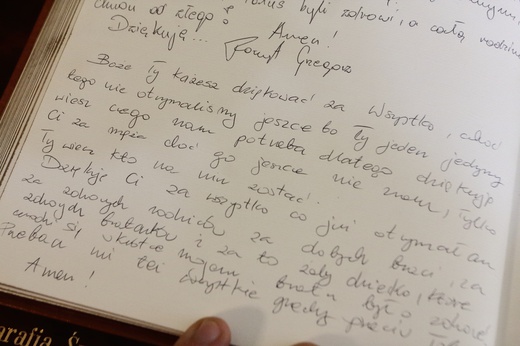 byli zdrowi, a całą rodzinę
od złego
Dziękuję... Amen!
Grzegorz
Boże Ty każesz dziękować za wszystko, choć
tego nie otrzymaliśmy jeszcze bo Ty jeden jedyny
wiesz czego nam potrzeba dlatego dziękuję
Ci za męża choć go jeszcze nie znam, tylko
Ty wiesz kto ma nim zostać.
Dziękuję Ci za wszystko co już otrzymałam
za zdrowych rodziców za dobrych braci, za
zdrowych bratanków i za to żeby dziecko, które
urodzi się wkrótce mojemu bratu było zdrowe
Przebacz mi też wszystkie grzechy przeciw
Amen!